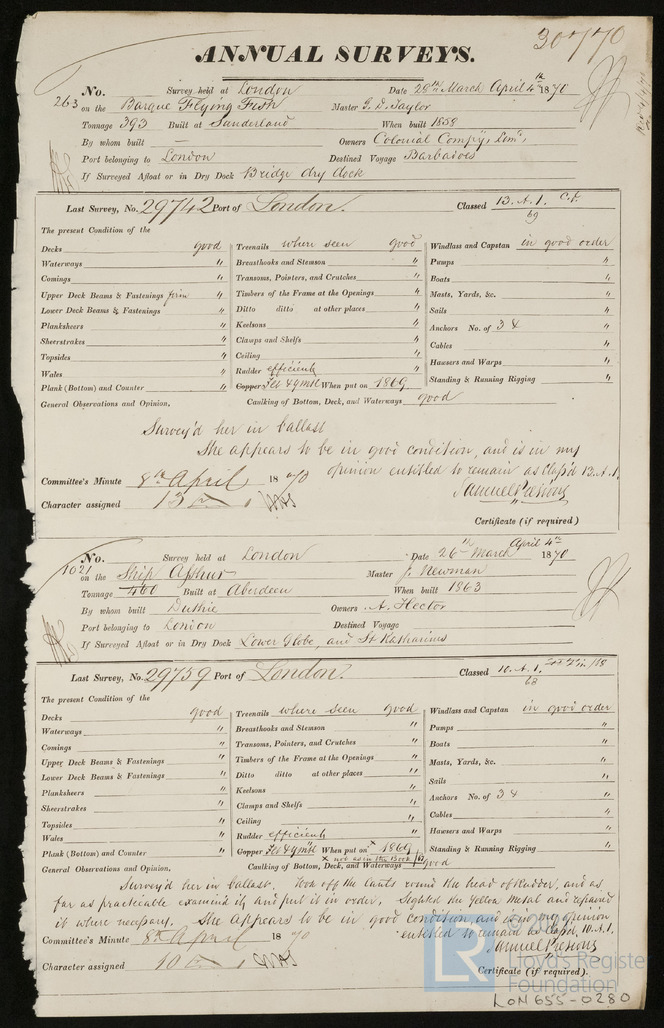 30770
ANNUAL SURVEYS.
No. 263 Survey held at London Date 28th March April 4th 1870
on the Barque Flying Fish Master G. D. Taylor
Tonnage 393 Built at Sunderland When built 1858
By whom built — Owners Colonial Compy, Limd,
Port belonging to London Destined Voyage Barbados
If Surveyed Afloat or in Dry Dock Bridge dry dock
Last Survey, No. 29742 Port of London. Classed 13. A. 1. C.F. 69
The present Condition of the
Decks good Treenails where seen good Windlass and Capstan in good order
Waterways " Breasthooks and Stemson " Pumps "
Comings " Transoms, Pointers, and Crutches " Boats "
Upper Deck Beams & Fastenings " Timbers of the Frame at the Openings " Masts, Yards, &c. "
Lower Deck Beams & Fastenings " Ditto ditto at other places " Sails "
Planksheers " Keelsons " Anchors No. of 3 & "
Sheerstrakes " Clamps and Shelfs " Cables "
Topsides " Ceiling " Hawsers and Warps "
Wales " Rudder efficient Standing & Running Rigging "
Plank (Bottom) and Counter " Copper Felt & Y mtl When put on 1869
General Observations and Opinion, Caulking of Bottom, Deck, and Waterways good
Survey'd her in ballast
She appears to be in good condition, and is in my
opinion entitled to remain as Clas'd 13. A. 1.
Committee's Minute 8th April 1870
Character assigned 13
Certificate (if required)
No. 1021 Survey held at London Date 26th March April 4th 1870
on the Ship Master J. Newman
Tonnage 460 Built at Aberdeen When built 1863
By whom built Duthie Owners A. Hector
Port belonging to London Destined Voyage
If Surveyed Afloat or in Dry Dock Lower Globe, and St Katharines
Last Survey, No. 29759 Port of London. Classed 10. A. 1. 68
The present Condition of the
Decks good Treenails where seen good Windlass and Capstan in good order
Waterways " Breasthooks and Stemson " Pumps "
Comings " Transoms, Pointers, and Crutches " Boats "
Upper Deck Beams & Fastenings " Timbers of the Frame at the Openings " Masts, Yards, &c. "
Lower Deck Beams & Fastenings " Ditto ditto at other places " Sails "
Planksheers " Keelsons " Anchors No. of 3 & "
Sheerstrakes " Clamps and Shelfs " Cables "
Topsides " Ceiling " Hawsers and Warps "
Wales " Rudder efficient Standing & Running Rigging "
Plank (Bottom) and Counter " Copper Felt & Y mtl When put on x 1869
x not as in the Book
General Observations and Opinion, Caulking of Bottom, Deck, and Waterways good
Survey'd her in ballast. Took off the Cants round the head of Rudder, and as
far as practicable examined it, and put it in order. Sighted the Yellow Metal and repaired
it where necessary. She appears to be in good condition, and is in my opinion
entitled to remain as Clas'd, 10. A. 1.
Committee's Minute 8th April 1870
Character assigned 10
Certificate (if required).
LR
Lloyd's Register
Foundation
LON655-0280